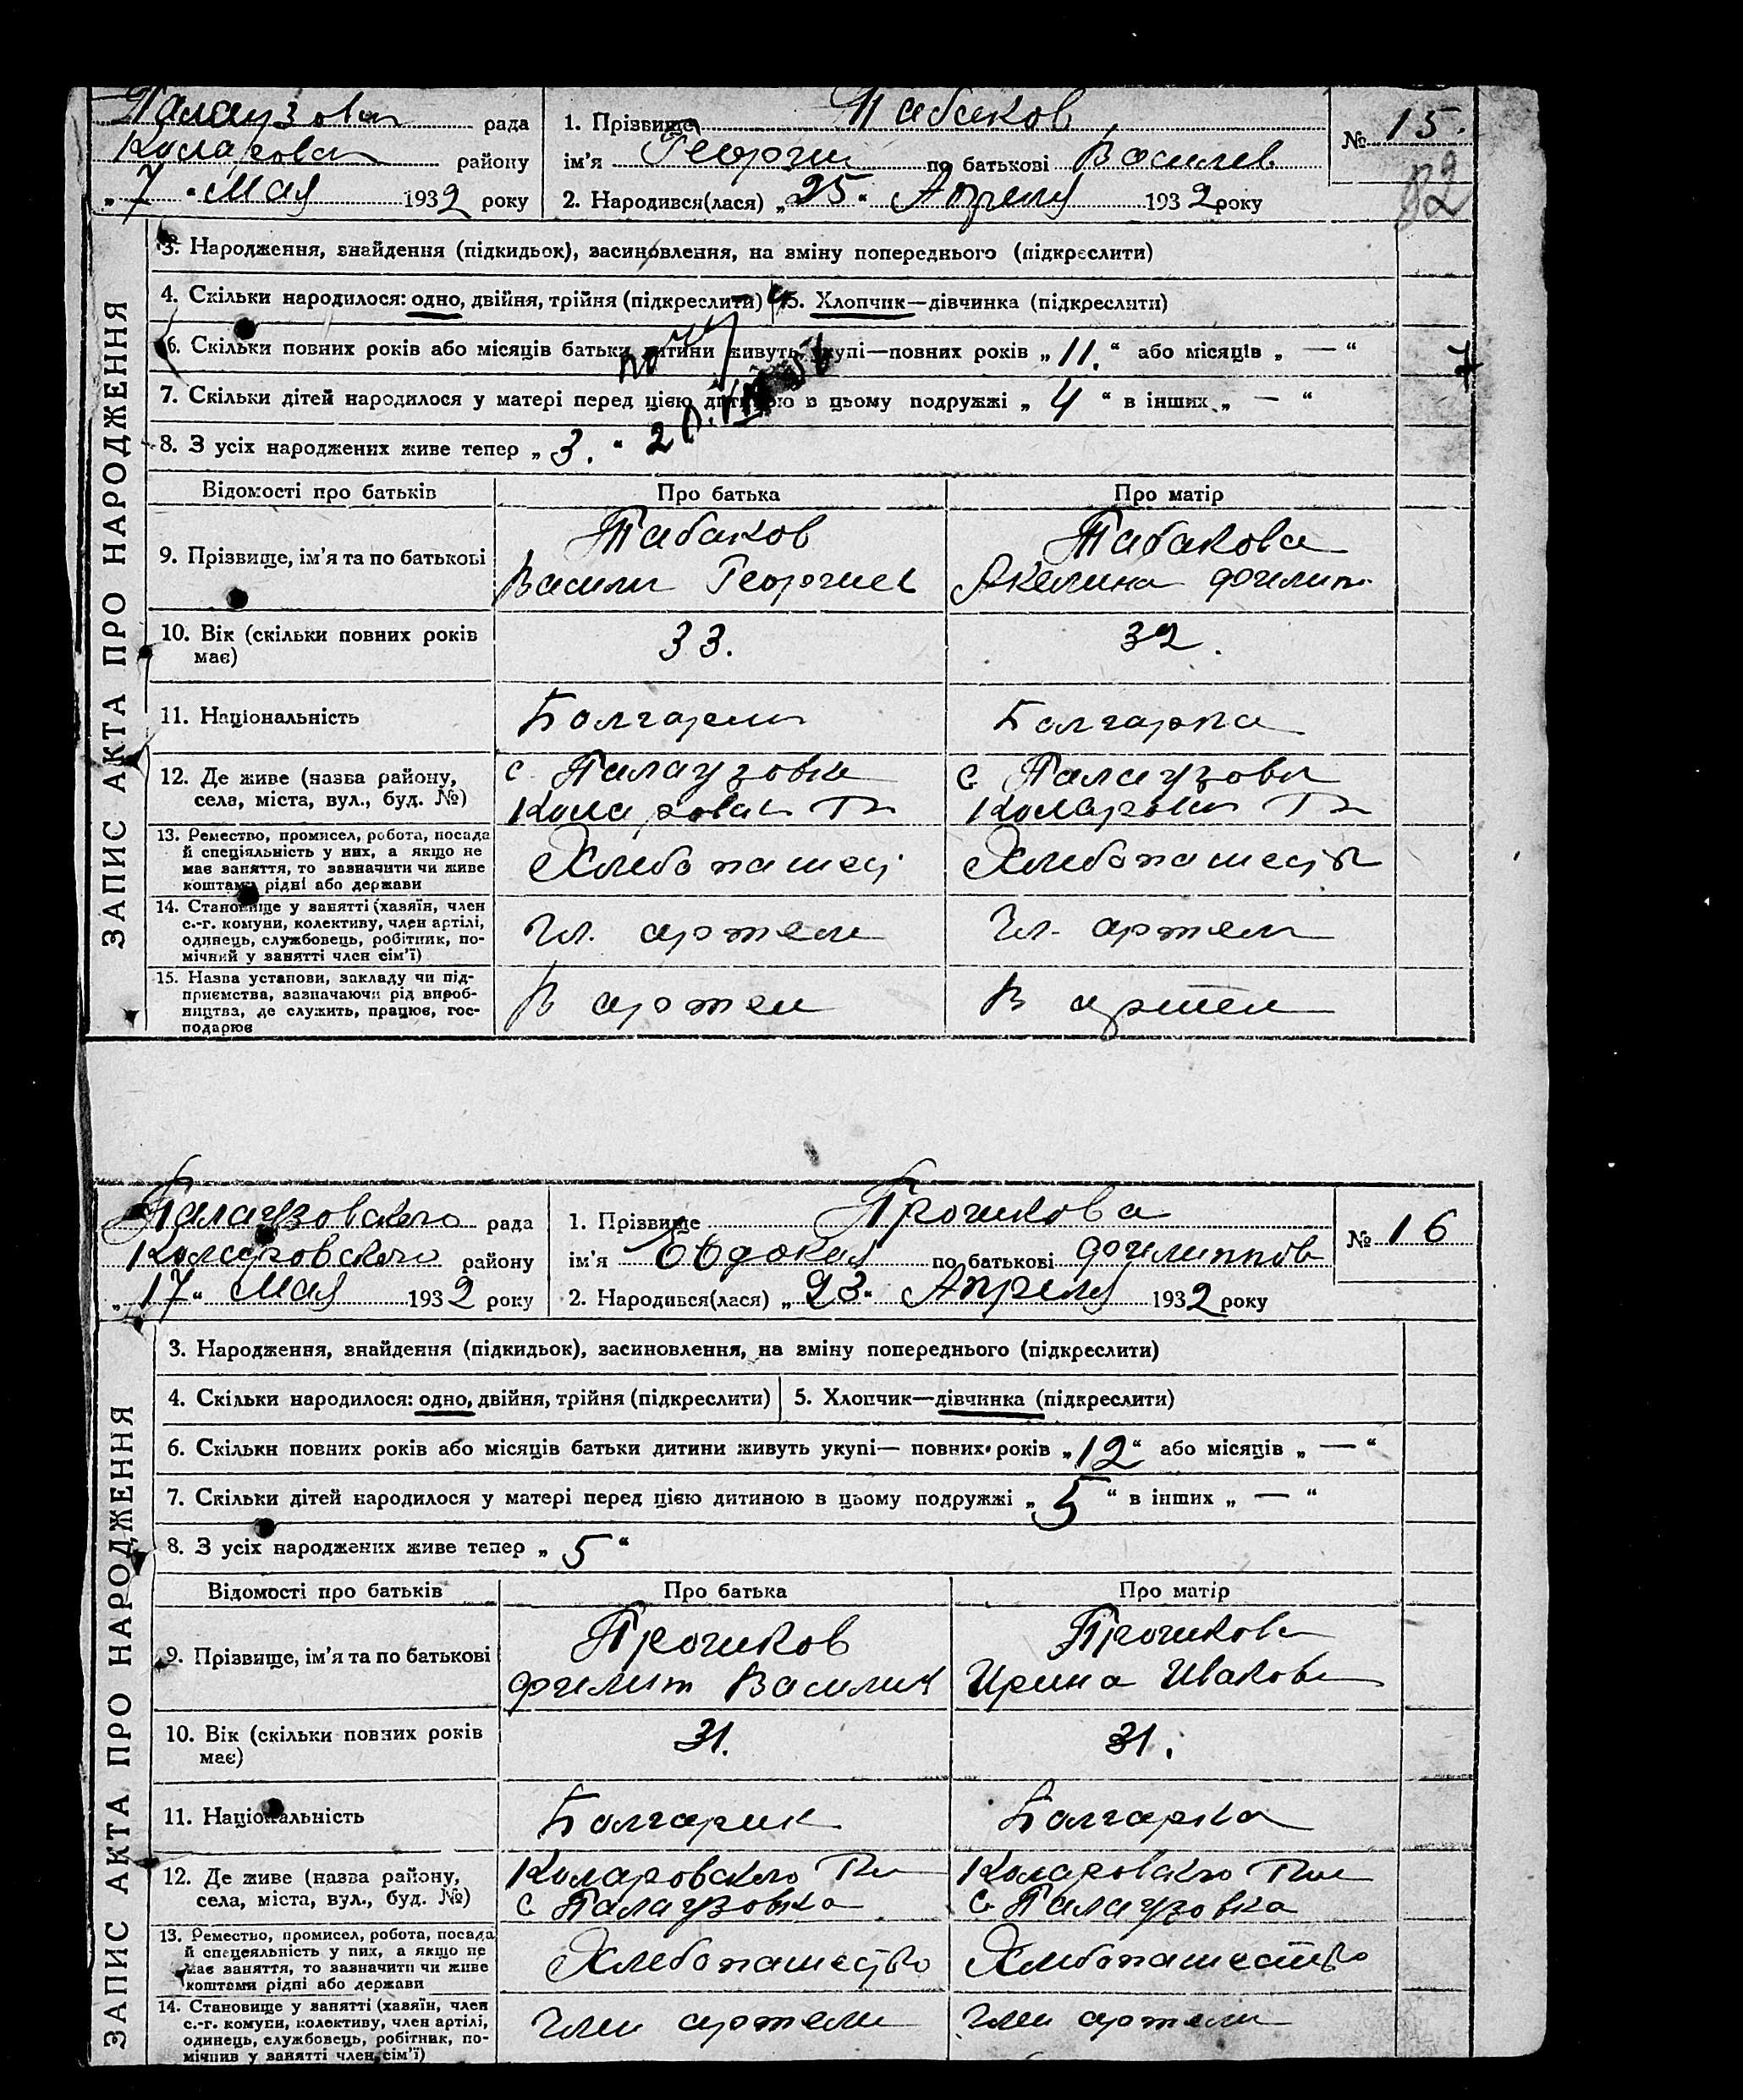 Палаузовск рада
Коларовск району
„7“ Мая 1932 року
1. Прізвище Табаков
ім'я Георгий по батькові Василев
2. Народився(лася) „25“ Апреля 1932 року
№ 15.
82
ЗАПИС АКТА ПРО НАРОДЖЕННЯ
3. Народження, знайдення (підкидьок), засиновлення, на зміну попереднього (підкреслити)
4. Скільки народилося: одно, двійня, трійня (підкреслити) 5. Хлопчик—дівчинка (підкреслити)
6. Скільки повних років або місяців батьки дитини живуть укупі—повних років „11.“ або місяців „—“
7. Скільки дітей народилося у матері перед цією дитиною в цьому подружжі „4“ в інших „—“
8. З усіх народжених живе тепер „3.“
Відомості про батьків Про батька Про матір
9. Прізвище, ім'я та по батькові Табаков Табакова
Василий Георгиев Акелина Филип
10. Вік (скільки повних років має) 33. 32.
11. Національність Болгарин Болгарка
12. Де живе (назва району, с. Палаузовка с. Палаузовк
села, міста, вул., буд. №) Коларовск Коларовск
13. Ремество, промисел, робота, посада
й спеціяльність у них, а якщо не Хлебопашец Хлебопашеств
має заняття, то зазначити чи живе
коштами рідні або держави
14. Становище у занятті (хазяїн, член
с.-г. комуни, колективу, член артілі, Чл. артели Чл. артели
одинець, службовець, робітник, по-
мічний у занятті член сім'ї)
15. Назва установи, закладу чи під-
приємства, зазначаючи рід вироб- В артели В артели
ництва, де служить, працює, гос-
подарює
Палаузовского рада
Коларовского району
„17“ Мая 1932 року
1. Прізвище Трочкова
ім'я Евдокия по батькові Филиппов
2. Народився(лася) „23“ Апреля 1932 року
№ 16
ЗАПИС АКТА ПРО НАРОДЖЕННЯ
3. Народження, знайдення (підкидьок), засиновлення, на зміну попереднього (підкреслити)
4. Скільки народилося: одно, двійня, трійня (підкреслити) 5. Хлопчик—дівчинка (підкреслити)
6. Скільки повних років або місяців батьки дитини живуть укупі— повних років „12“ або місяців „—“
7. Скільки дітей народилося у матері перед цією дитиною в цьому подружжі „5“ в інших „—“
8. З усіх народжених живе тепер „5“
Відомості про батьків Про батька Про матір
9. Прізвище, ім'я та по батькові Трочков Трочкова
Филип Василия Ирина Ивакова
10. Вік (скільки повних років має) 31. 31.
11. Національність Болгарин Болгарка
12. Де живе (назва району, Коларовского Коларовского
села, міста, вул., буд. №) с. Палаузовка с. Палаузовка
13. Ремество, промисел, робота, посада
й спецеяльність у них, а якщо не Хлебопашество Хлебопашество
має заняття, то зазначити чи живе
коштами рідні або держави
14. Становище у занятті (хазяїн, член
с.-г. комуни, колективу, член артілі, Член артели Член артели
одинець, службовець, робітник, по-
мічнив у занятті член сім'ї)